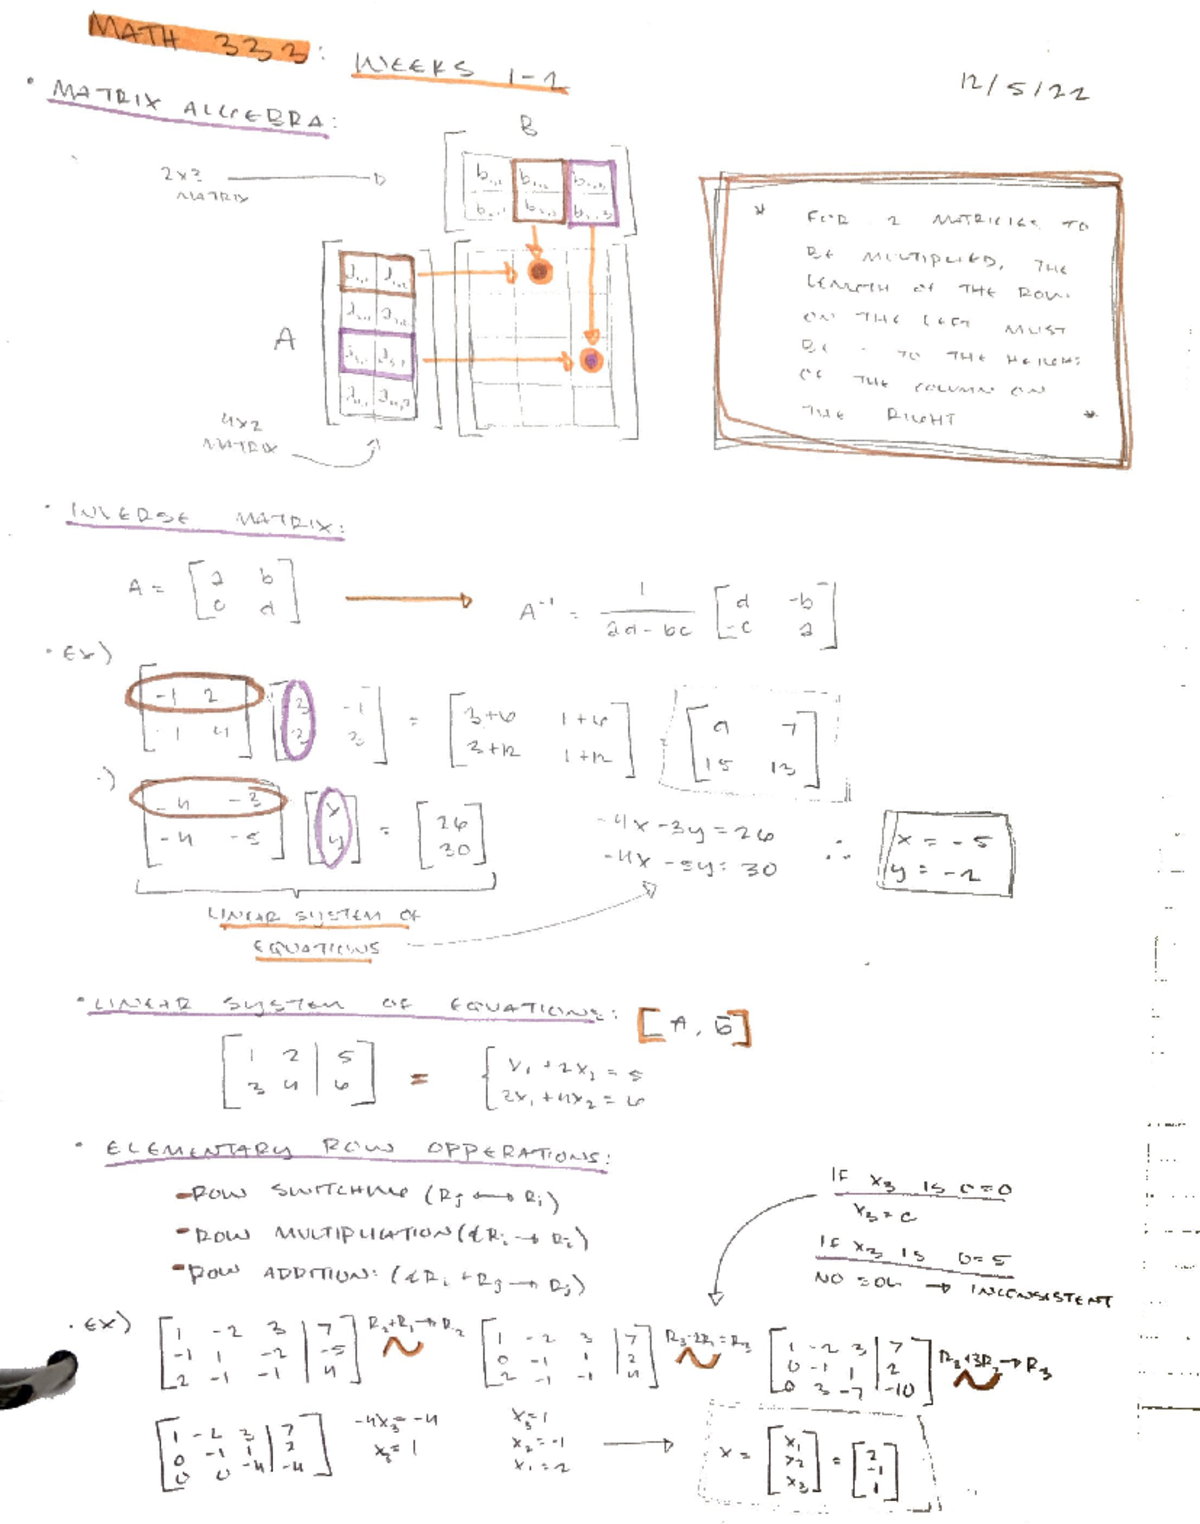 MATH 333: WEEKS 1-2
12/5/22
• MATRIX ALGEBRA:
B
2x3 MATRIX
b1,1 b1,2 b1,3
b2,1 b2,2 b2,3
A
a1,1 a1,2
a2,1 a2,2
a3,1 a3,2
a4,1 a4,2
4x2 MATRIX
* FOR 2 MATRICIES TO
BE MULTIPLIED, THE
LENGTH OF THE ROW
ON THE LEFT MUST
BE = TO THE HEIGHT
OF THE COLUMN ON
THE RIGHT *
• INVERSE MATRIX:
A = [a b; c d] → A⁻¹ = 1/(ad-bc) [d -b; -c a]
• EX)
[-1 2; 1 4] [3 -1; 3 3] = [3+6 1+6; 3+12 1+12] = [9 7; 15 13]
•)
[-4 -3; -4 -5] [x; y] = [26; 30]
-4x-3y=26
-4x-5y=30
∴ x = -5
y = -2
LINEAR SYSTEM OF
EQUATIONS
• LINEAR SYSTEM OF EQUATIONS: [A, b]
[1 2 | 5; 3 4 | 6] = { x₁ + 2x₂ = 5
2x₁ + 4x₂ = 6
• ELEMENTARY ROW OPPERATIONS:
- ROW SWITCHING (Rj ↔ Ri)
- ROW MULTIPLICATION (αRi → Ri)
- ROW ADDITION: (αRi + Rj → Rj)
IF x₃ IS 0=0
x₃ = C
IF x₃ IS 0=5
NO SOL → INCONSISTENT
• EX)
[1 -2 3 | 7; -1 1 -2 | -5; 2 -1 -1 | 4] R₂+R₁→R₂ ~ [1 -2 3 | 7; 0 -1 1 | 2; 2 -1 -1 | 4] R₃-2R₁=R₃ ~ [1 -2 3 | 7; 0 -1 1 | 2; 0 3 -7 | -10] R₃+3R₂→R₃ ~
[1 -2 3 | 7; 0 -1 1 | 2; 0 0 -4 | -4]
-4x₃=-4
x₃=1
x₃=1
x₂=-1
x₁=2
→ x = [x₁; x₂; x₃] = [2; -1; 1]